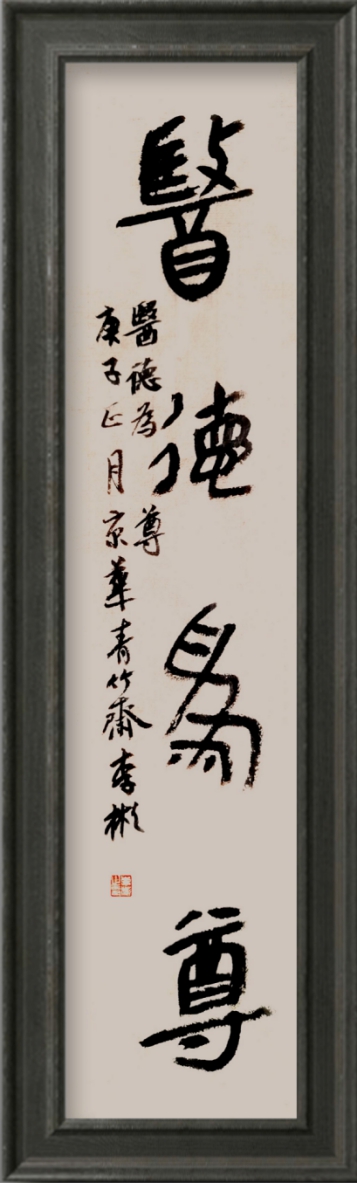 醫德為尊
醫德為尊
庚子正月京華青竹齋李彬